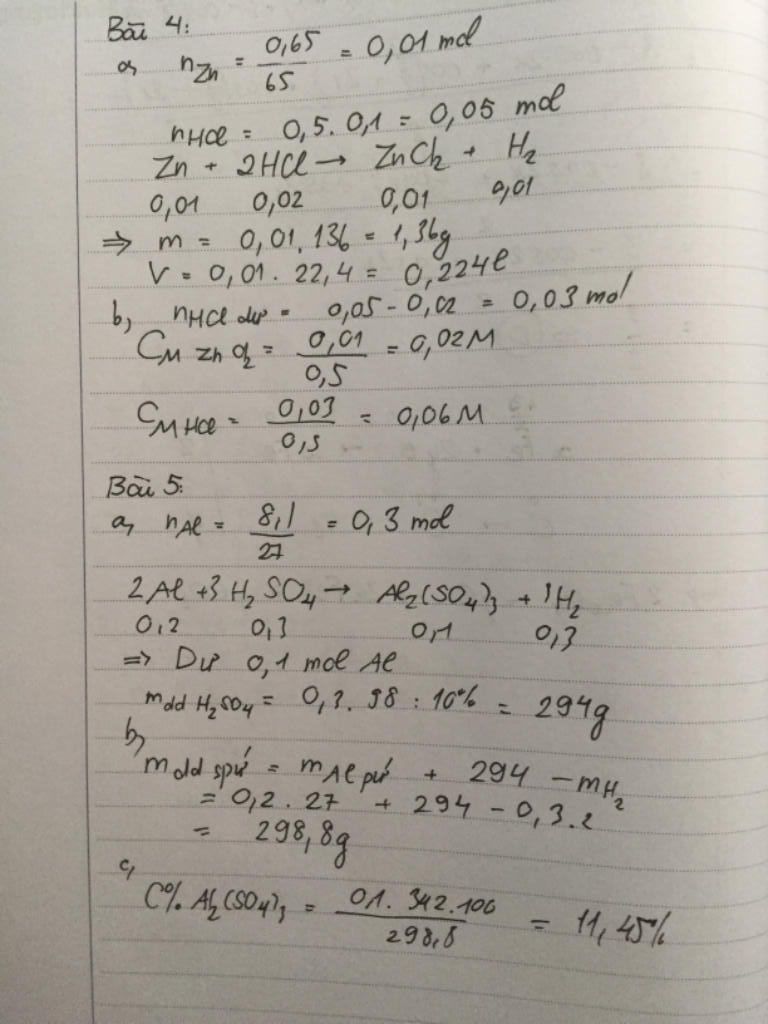 Bài 4:
a, nZn = 0,65/65 = 0,01 mol
nHCl = 0,5. 0,1 = 0,05 mol
Zn + 2HCl → ZnCl2 + H2
0,01 0,02 0,01 0,01
⇒ m = 0,01.136 = 1,36g
V = 0,01. 22,4 = 0,224l
b, nHCl dư = 0,05 - 0,02 = 0,03 mol
CM ZnCl2 = 0,01/0,5 = 0,02M
CM HCl = 0,03/0,5 = 0,06M
Bài 5:
a, nAl = 8,1/27 = 0,3 mol
2Al + 3H2SO4 → Al2(SO4)3 + 3H2
0,2 0,3 0,1 0,3
⇒ Dư 0,1 mol Al
mdd H2SO4 = 0,3. 98 : 10% = 294g
b,
mdd spứ = mAl pứ + 294 - mH2
= 0,2. 27 + 294 - 0,3.2
= 298,8g
c,
C% Al2(SO4)3 = 0,1. 342.100/298,8 = 11,45%